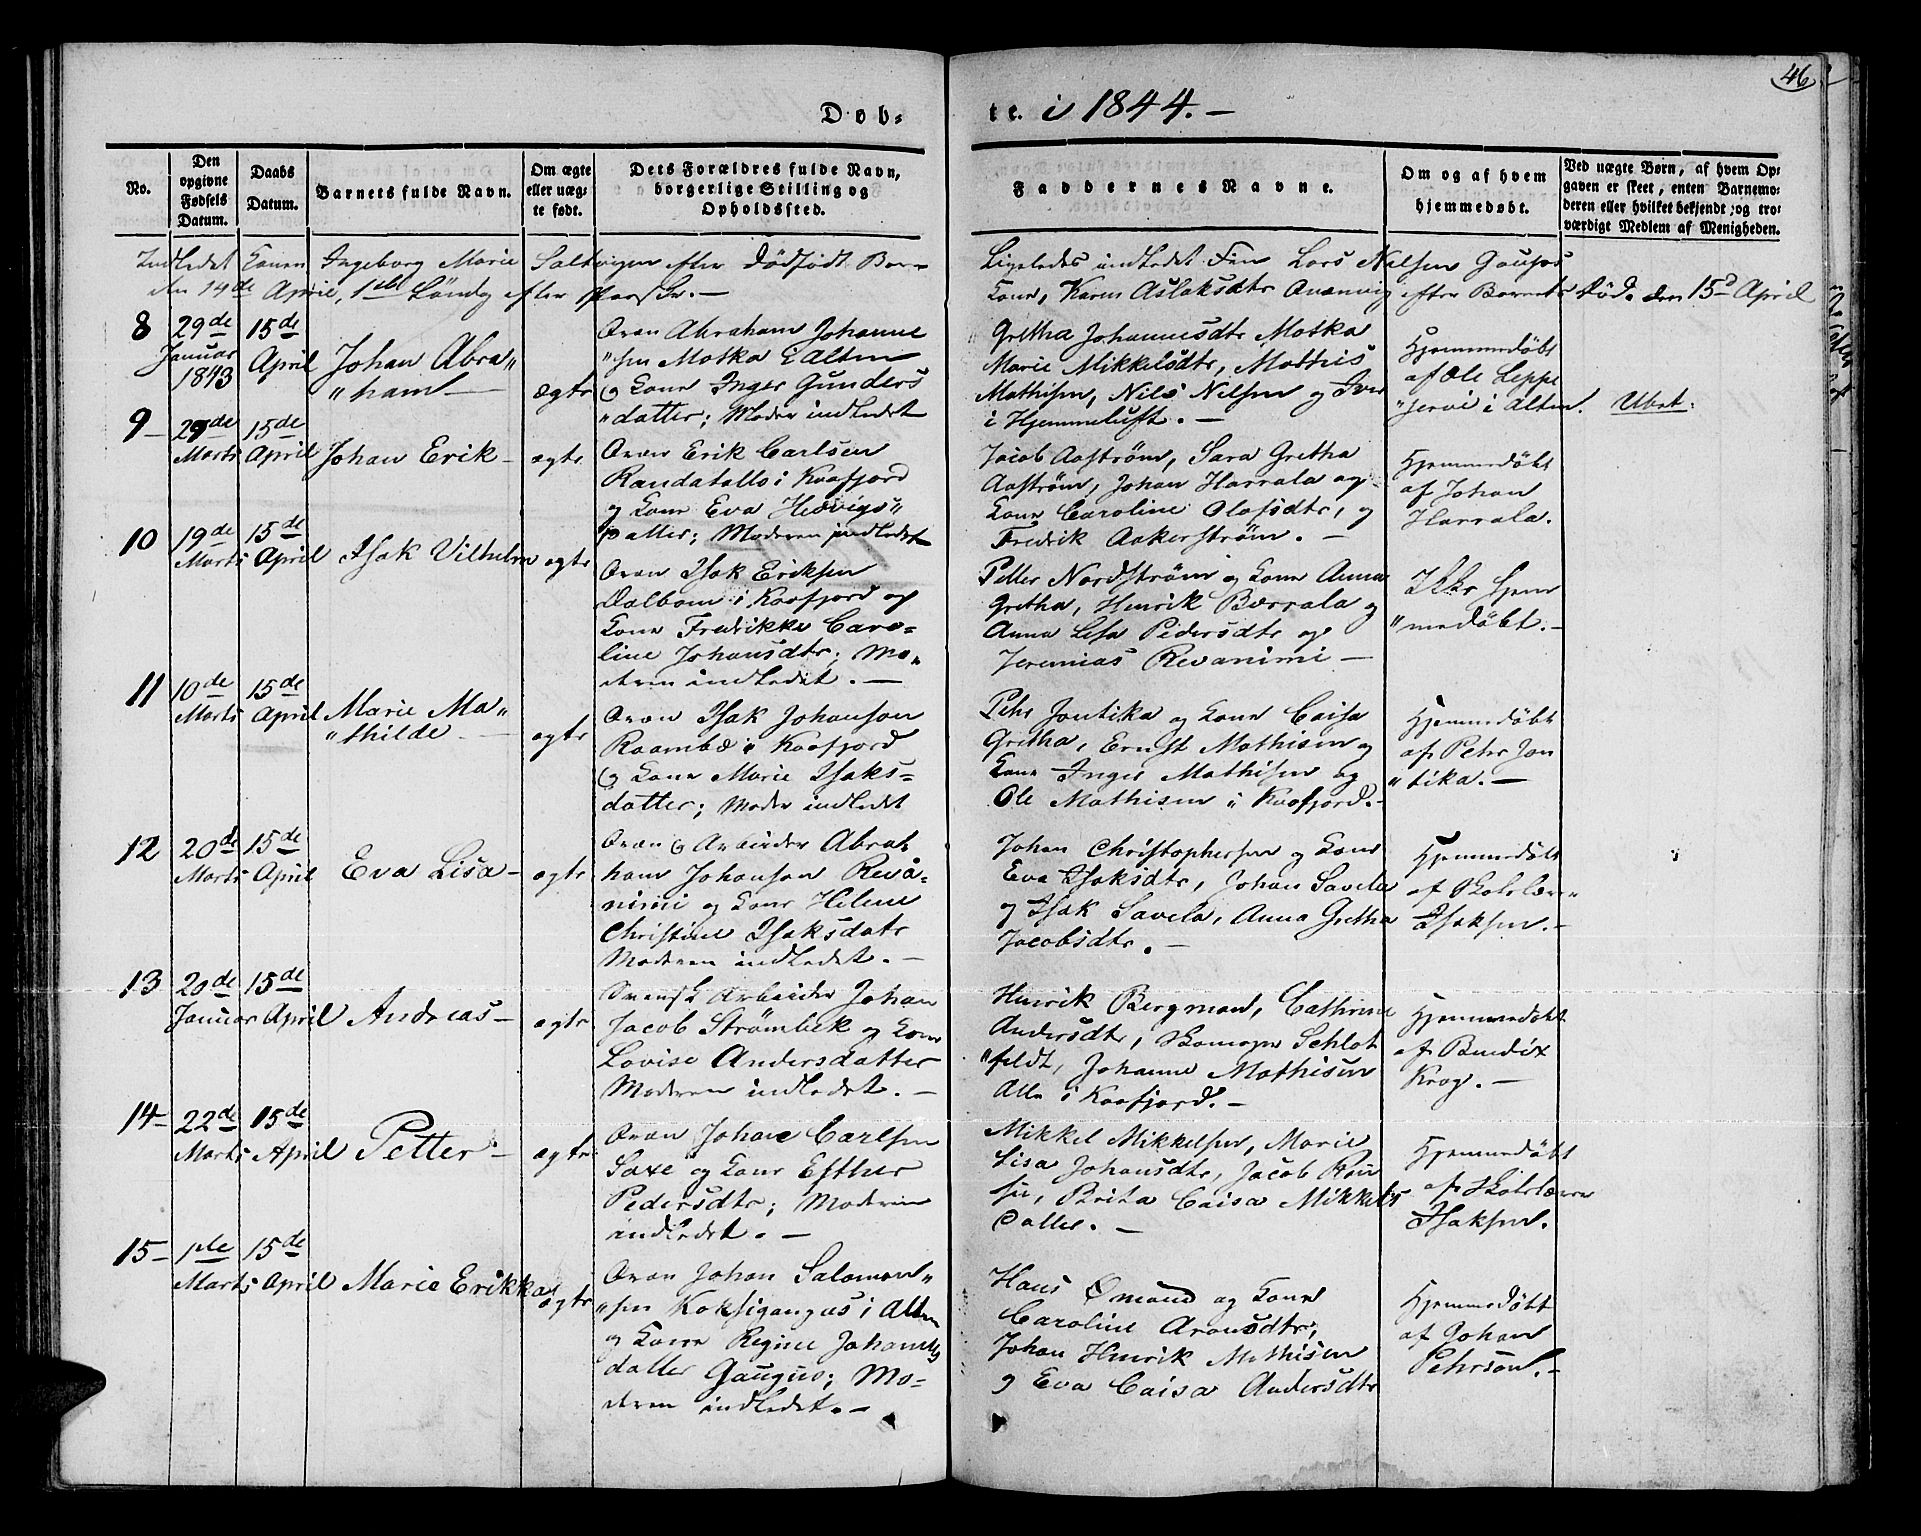 46
Døb-
te. i 1844.-
No.
Den opgivne Fødsels Datum.
Daabs Datum.
Barnets fulde Navn.
Om ægte eller uæg- te født.
Dets Forældres fulde Navn, borgerlige Stilling og Opholdssted.
Faddernes Navne.
Om og af hvem hjemmedøbt.
Ved uægte Børn, af hvem Op- gaven er skeet, enten Barnemo- deren eller hvilket bekjendt, og tro- værdigt Medlem af Menigheden.
Indledet Konen Ingeborg Marie efter dødfødt Barn
den 14de April, 1ste Søndag efter Paaske.-
Ligeledes indledet Fin Lars Nilsen Gaups
Kone, Karen Aslaksdtr Qvænvig efter Barnets Død. den 15d April
8
29de Januar 1843
15de April
Johan Abra"
"ham-
ægte
Qvæn Abraham Johanne
"sen Motka i Alten
og Kone Inger Gunders
"datter; Moder indledet
Gretha Johannesdtr Motka
Marie Mikkelsdtr, Mathis
Mathisen, Nils Nilsen og Iver
i Hjemmeluft.-
Hjemmedøbt
af Ole Leppe
"jervi i Alten.
9-
Marts
15de April
Johan Erik-
ægte
Qvæn Erik Carlsen
Randatallo i Kaafjord
og Kone Eva Hedvigs"
datter; Moderen indledet
Jacob Aaström, Sara Gretha
Aaström, Johan Harrala og
Kone Caroline Olafsdtr, og
Fredrik Aakerström.-
Hjemmedøbt
af Johan
Harrala.
10
19de Marts
15de April
Isak Vilhelm
ægte
Qvæn Isak Eriksen
Dalbom i Kaafjord og
Kone Fredrikke Caro-
line Johansdtr; Mo"
deren indledet.-
Petter Nordström og Kone Anna
Gretha, Henrik Barrala og
Anna Lisa Pedersdtr og
Jeremias Revanimi-
Ikke hjem
"medøbt.-
11
10de Marts
15de April
Marie Ma"
"thilde-
ægte
Qvæn Isak Johanson
i Kaafjord
og Kone Marie Isaks-
datter; Moder indledet
Pehr Jontika og Kone Caisa
Gretha, Ernst Mathisen og
Kone Inger Mathisen og
Ole Mathisen i Kaafjord.-
Hjemmedøbt
af Pehr Jon
"tika.-
12
20de Marts
15de April
Eva Lisa-
ægte
Qvæn og Arbeider Abra
ham Johanson Reva-
nimi og Kone Helene
Christine Isaksdatr
Moderen indledet.-
Johan Christophersen og Kone
Eva Isaksdtr, Johan Savela
og Isak Savela, Anna Gretha
Jacobsdtr.-
Hjemmedøbt
af Skolelærer
Isaksen.-
13
20de Januar
15de April
Andreas-
ægte
Svensk Arbeider Johan
Jacob Strömbek og Kone
Lovise Andersdatter
Moderen indledet.-
Henrik Bergman, Cathrine
Andersdtr, Skomager Schlot
"feldt, Johanne Mathisen
Alle i Kaafjord.-
Hjemmedøbt
af Bendix
Krog.-
14-
22de Marts
15de April
Petter-
ægte
Qvæn Johan Carlsen
Saxe og Kone Esther
Pedersdtr; Moderen
indledet.-
Mikkel Mikkelsen, Marie
Lisa Johansdtr, Jacob
Brita Caisa Mikkels
datter.-
Hjemmedøbt
af Skolelærer
Isaksen.
15-
1ste Marts
15de April
Marie Erikka
ægte
Qvæn Johan Salomon"
"sen Koksigangas i Alten
og Kone Regine Johannes
datter Gaugus; Mo-
deren indledet.-
Hans Ømand og Kone
Caroline Aronsdtr,
Johan Henrik Mathisen
og Eva Caisa Andersdtr
Hjemmedøbt
af Johan
Pehrson.-